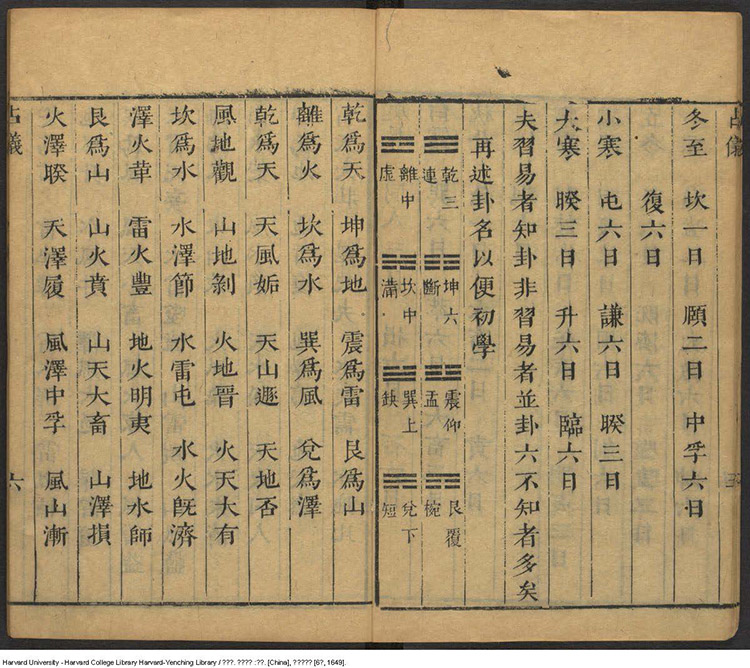 占儀
冬至 坎一日 願二日 中孚六日
復六日
小寒 屯六日 謙六日 睽三日
大寒 睽三日 升六日 臨六日
夫習易者知卦非習易者並卦六不知者多矣
再述卦名以便初學
☰ 乾三連 ☷ 坤六斷 ☳ 震仰盂 ☶ 艮覆椀
☲ 離中虛 ☵ 坎中滿 ☴ 巽上缺 ☱ 兌下短
乾爲天 坤爲地 震爲雷 艮爲山
離爲火 坎爲水 巽爲風 兌爲澤
乾爲天 天風姤 天山遯 天地否
風地觀 山地剝 火地晉 火天大有
坎爲水 水澤節 水雷屯 水火旣濟
澤火革 雷火豐 地火明夷 地水師
艮爲山 山火賁 山天大畜 山澤損
火澤睽 天澤履 風澤中孚 風山漸
占儀 六
Harvard University - Harvard College Library Harvard-Yenching Library / ???. ???? :??. [China], ????? [6?, 1649].